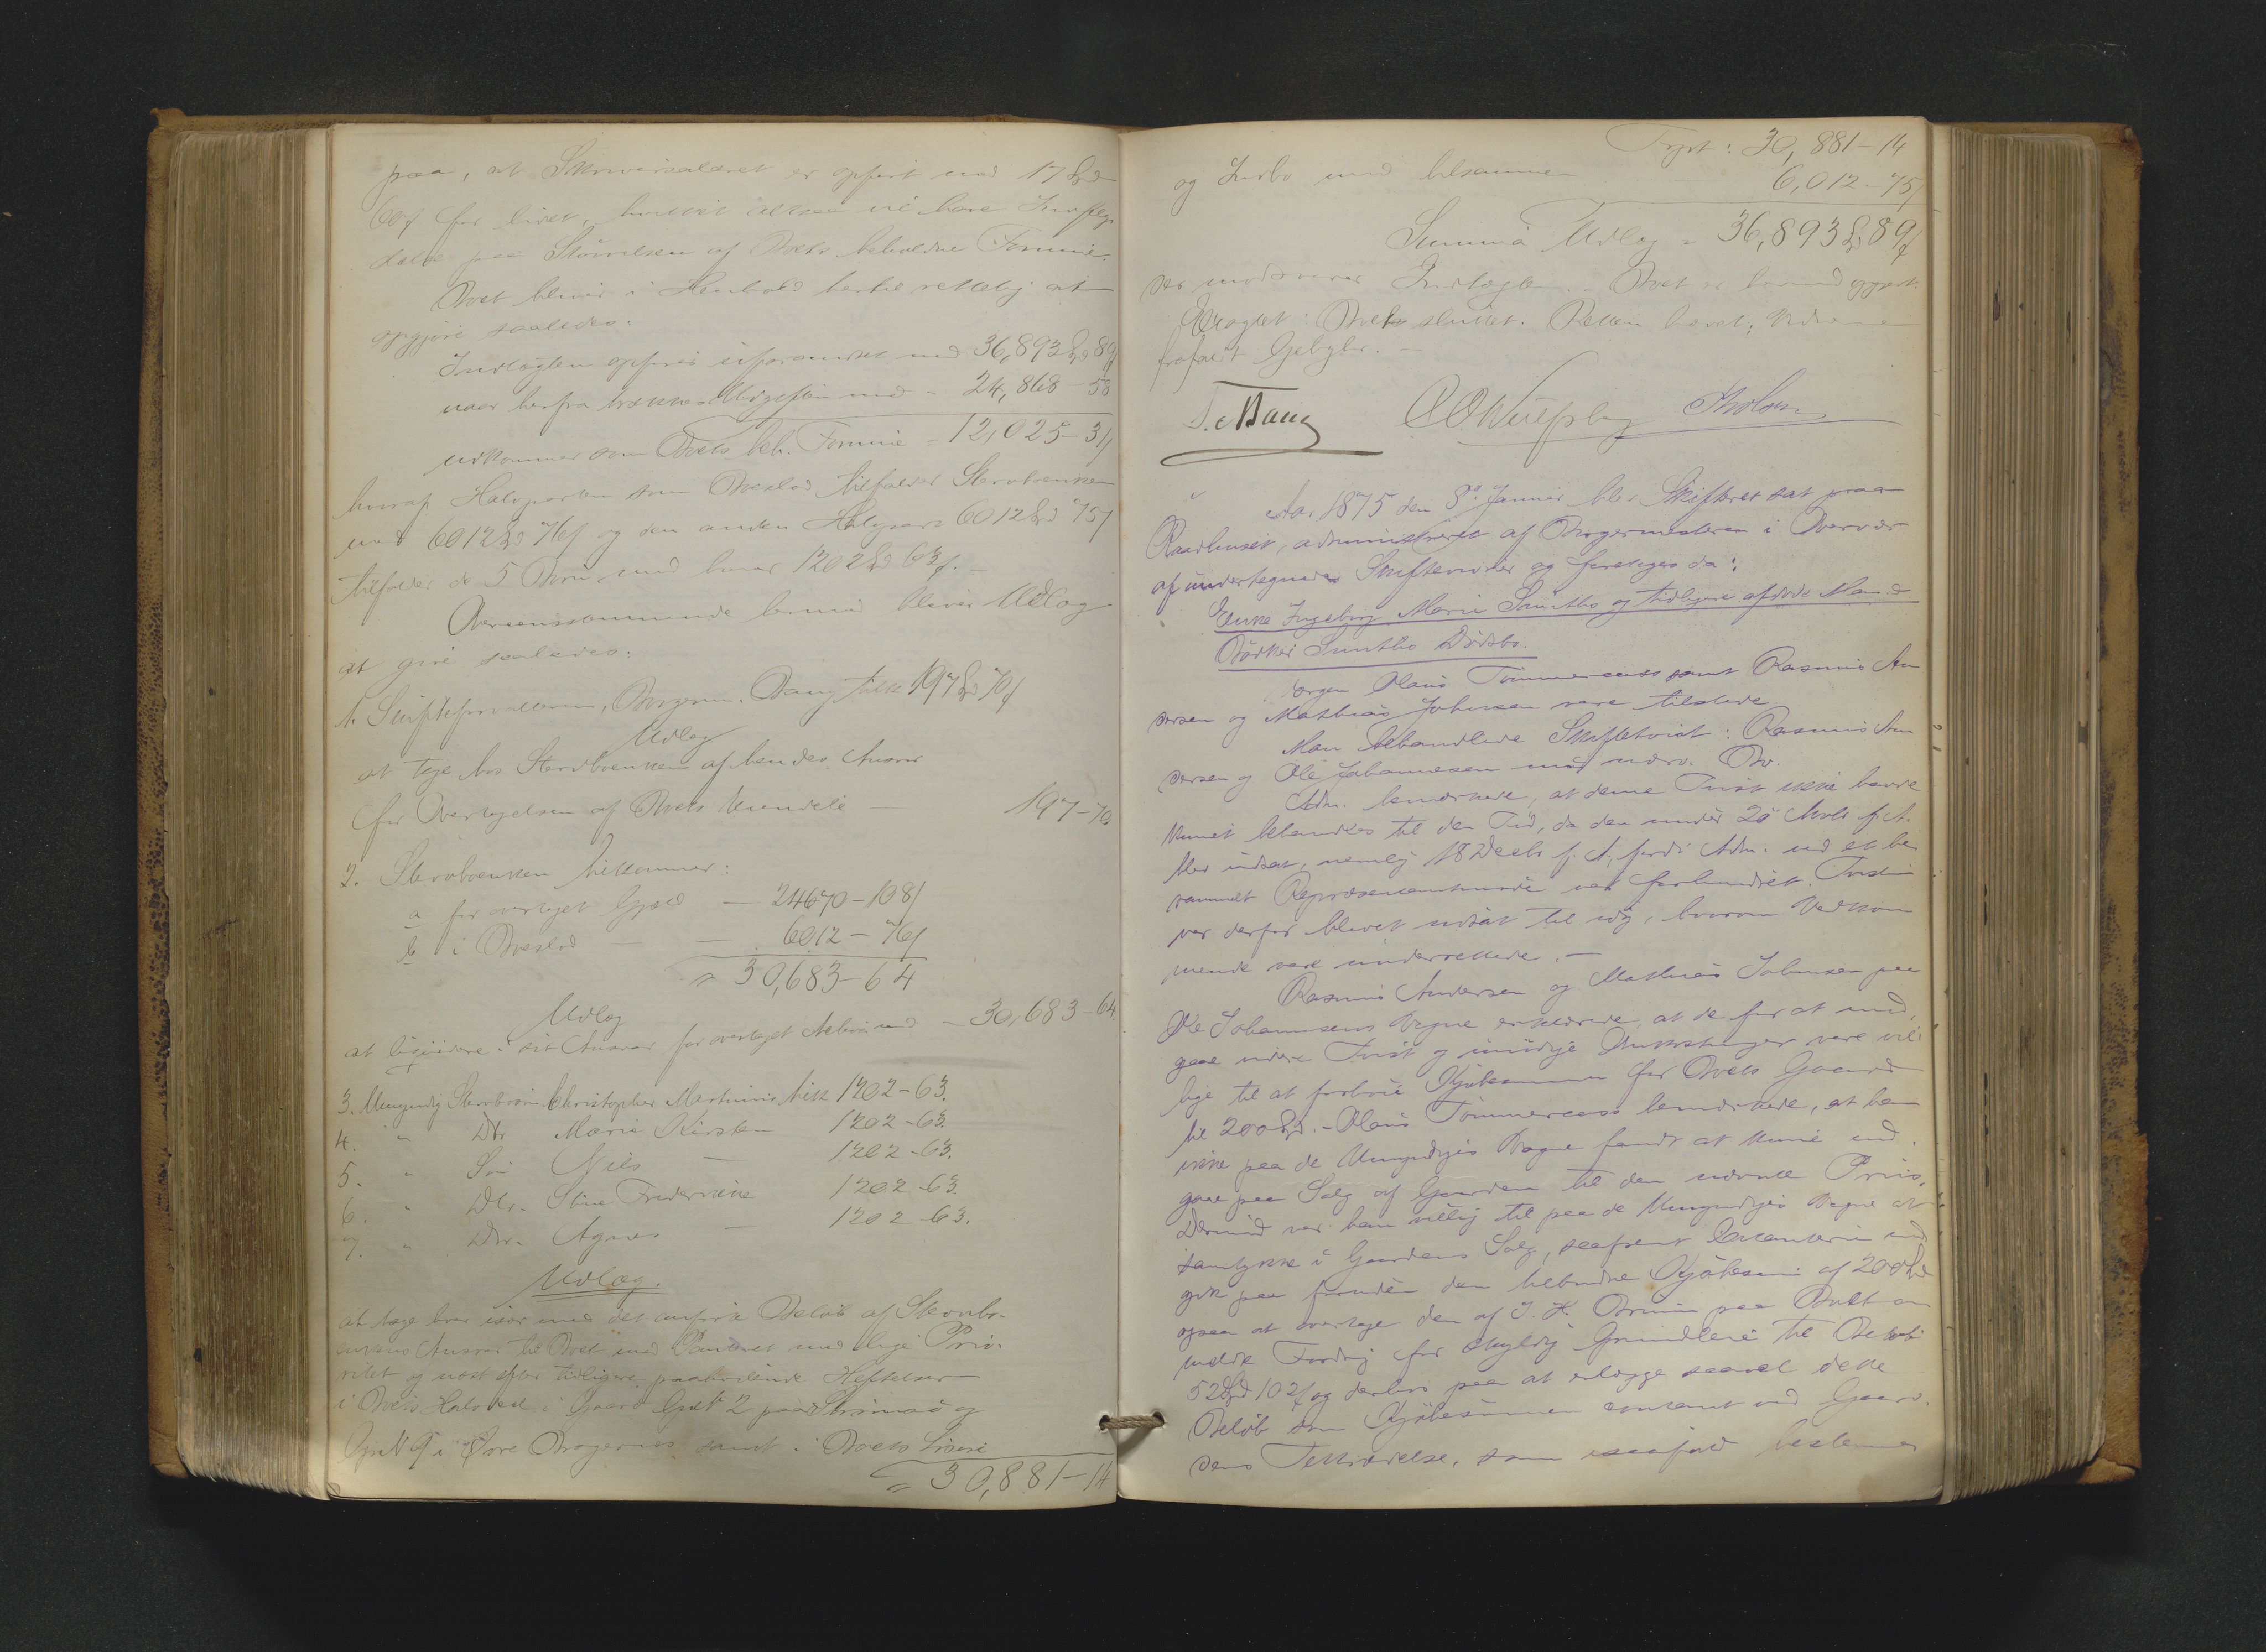 paa, at Skriversalæret er opført med 17 Spd
60 ſ for lidet, hvilket altsaa vil have Indflyd-
delse paa Størrelsen af Boets beholdne Formue.
Boet bliver i Henhold hertil rettelig at
opgjøre saaledes:
Indtægten opføres uforandret med 36,893 Spd 89 ſ
naar herfra trækkes Udgiften med - 24,868 - 58
udkommer som Boets beh. Formue = 12,025 - 31
hvoraf Halvparten som Boeslod tilfalder Stervboenken
med 6012 Spd 76 ſ og den anden Halvpart 6012 Spd 75 ſ
tilfalder de 5 Børn med hver 1202 Spd 63 ſ. -
Overensstemmende hermed bliver Udlæg
at give saaledes:
1. Skifteforvalteren, Borgerm. Bang tilk 197 Spd 70 ſ
Udlæg
at tage hos Stervboenken af hendes Ansvar
for Overtagelsen af Boets Eiendele - 197 - 70
2. Stervboenken tilkommer:
a for overtaget Gjæld - 24670 - 108
b i Boeslod - 6012 - 76
= 30,683 - 64
Udlæg
at liqvidere i sit Ansvar for overtaget Activa med - 30,683 - 64
3. Umyndig Stervbosøn Christopher Martinius tilk 1202 - 63.
4. " Dtr Marie Kirsten 1202 - 63.
5. " Søn Nils - 1202 - 63.
6. " Dtr. Stine Fredrikke 1202 - 63.
7. " Dtr. Agnes - 1202 - 63.
Udlæg.
at tage hver især med det anførte Beløb af Stervbo-
enkens Ansvar til Boet med Panteret med lige Prio-
ritet og næst efter tidligere paahvilende Heftelser
i Boets Halvdel i Gaard Gr No 2 paa Strømsø og
Gr N 9 i Øvre Bragernes samt i Boets Løsøre
= 30,881 - 14
Trspt: 30,881 - 14
og Indbo med tilsammen 6,012 - 75
Summa Udlæg = 36,893 Spd 89 ſ
der modsvarer Indtægten. - Boet er hermed opgjort.
Eragtet: Boet sluttet. Retten hævet; Vidnerne
frafaldt Gebyhr. -
T. Bang
Aar 1875 den 8de Januar blev Skifteret sat paa
Raadhuset, administreret af Borgermesteren i Overvær
af undertegnede Skiftevidner og foretoges da:
Enke Ingeborg Marie Smiths og tidligere afdøde Mand
Bødker Smiths Dødsbo.
Jørgen Olaus Tømmeraas samt Rasmus An-
dersen og Mathias Johnsen vare tilstede.
Man behandlede Skiftetvist: Rasmus An-
dersen og Ole Johannesen mod nærv. Bo.
Adm. bemærkede, at denne Tvist ikke havde
kunnet behandles til den Tid, da den under 20de Novbr f. A.
blev udsat, nemlig 18 Decbr f. A., fordi Adm. ved et be-
rammet Repræsentantmøde var forhindret. Tvisten
var derfor blevet udsat til idag, hvorom Vedkom-
mende vare underrettede. -
Rasmus Andersen og Mathias Johnsen paa
Ole Johannesens Vegne erklærede, at de for at und-
gaae videre Tvist og unødige Omkostninger vare vil-
lige til at forhøie Kjøbesummen for Boets Gaard
til 200 Spd. - Olaus Tømmeraas bemærkede, at han
ikke paa de Umyndiges Vegne fandt at kunne ind-
gaae paa Salg af Gaarden til den nævnte Priis.
Derimod var han villig til paa de Umyndiges Vegne at
samtykke i Gaardens Salg, saafremt Citanterne ind-
gik paa foruden den tilbudne Kjøbesum af 200 Spd
ogsaa at overtage den af J. H. Bruun paa Boet an-
meldte Fordring for skyldig Grundleie til Beløb
52 Spd 102 ſ og derhos paa at erlægge saavel dette
Beløb som Kjøbesummen contant ved Gaar-
dens Tiltrædelse, som isaafald bestemmes